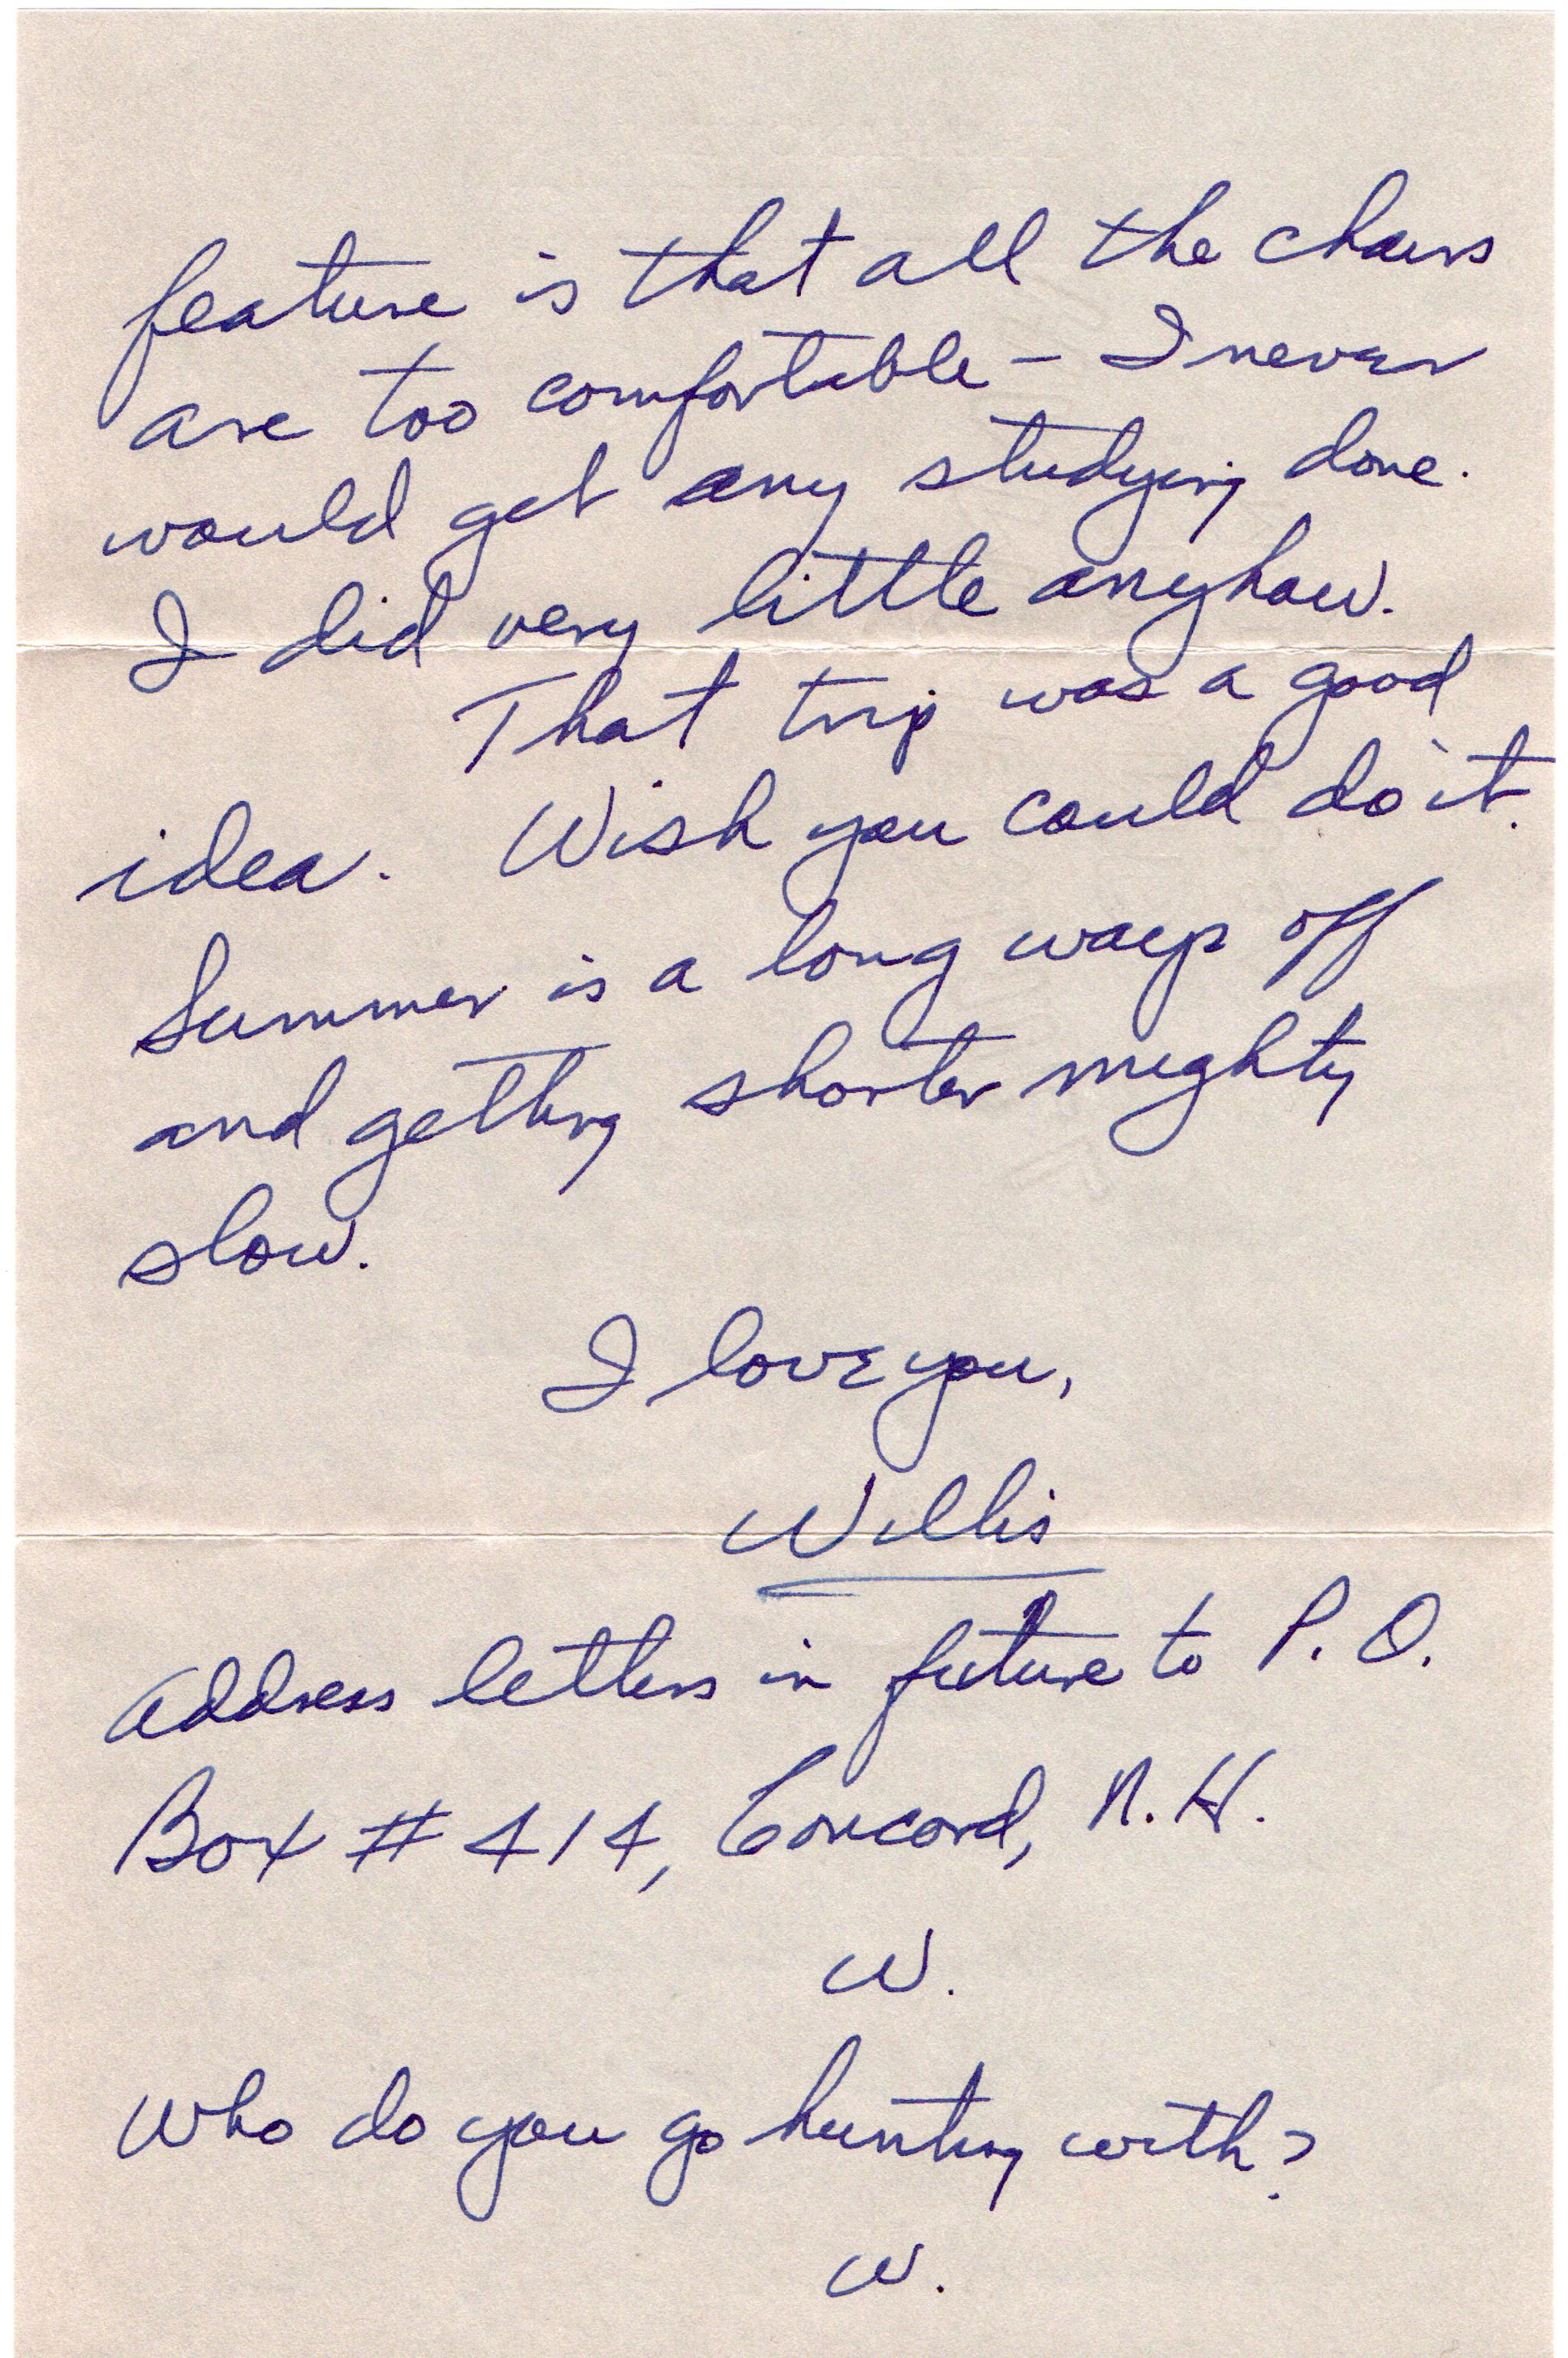 feature is that all the chairs
are too comfortable – I never
would get any studying done.
I did very little anyhow.
That trip was a good
idea. Wish you could do it.
Summer is a long ways off
and getting shorter mighty
slow.
I love you,
Willis
Address letters in future to P.O.
Box # 414, Concord, N.H.
W.
Who do you go hunting with?
W.